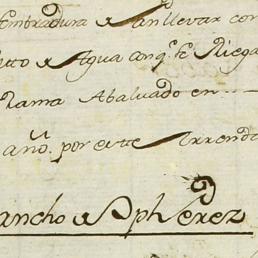 Sembradura de Pan llevar con
de Agua conq.e se Riega
llama Abaluado en
año. por este Arrenda
ancho de Jph Perez